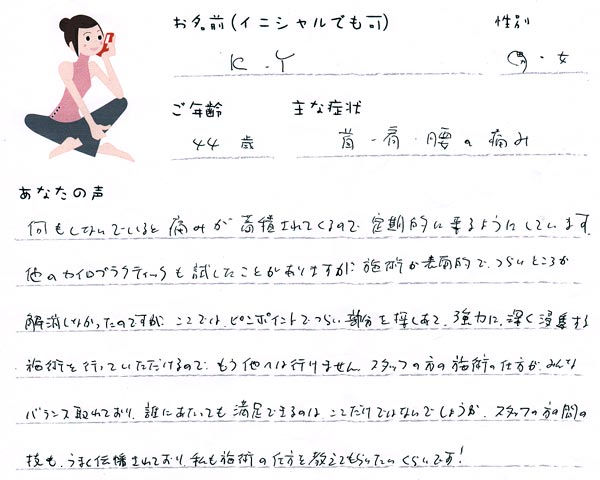 お名前(イニシャルでも可)
性別
K.Y
男・女
ご年齢
主な症状
44歳
首・肩・腰の痛み
あなたの声
何もしないでいると痛みが蓄積されてくるので定期的に来るようにしています。
他のカイロプラクティックも試したことがありますが、施術が表面的で、つらいところが
解消しなかったのですが、ここでは、ピンポイントでつらい部分を探しあて、強力に、深く浸透する
施術を行っていただけるので、もう他へは行けません。スタッフの方の施術の仕方が、みんな
バランス取れており、誰にあたっても満足できるのは、ここだけではないでしょうか。スタッフの方の間の
技も、うまく伝播されており、私も施術の仕方を教えてもらいたいくらいです!